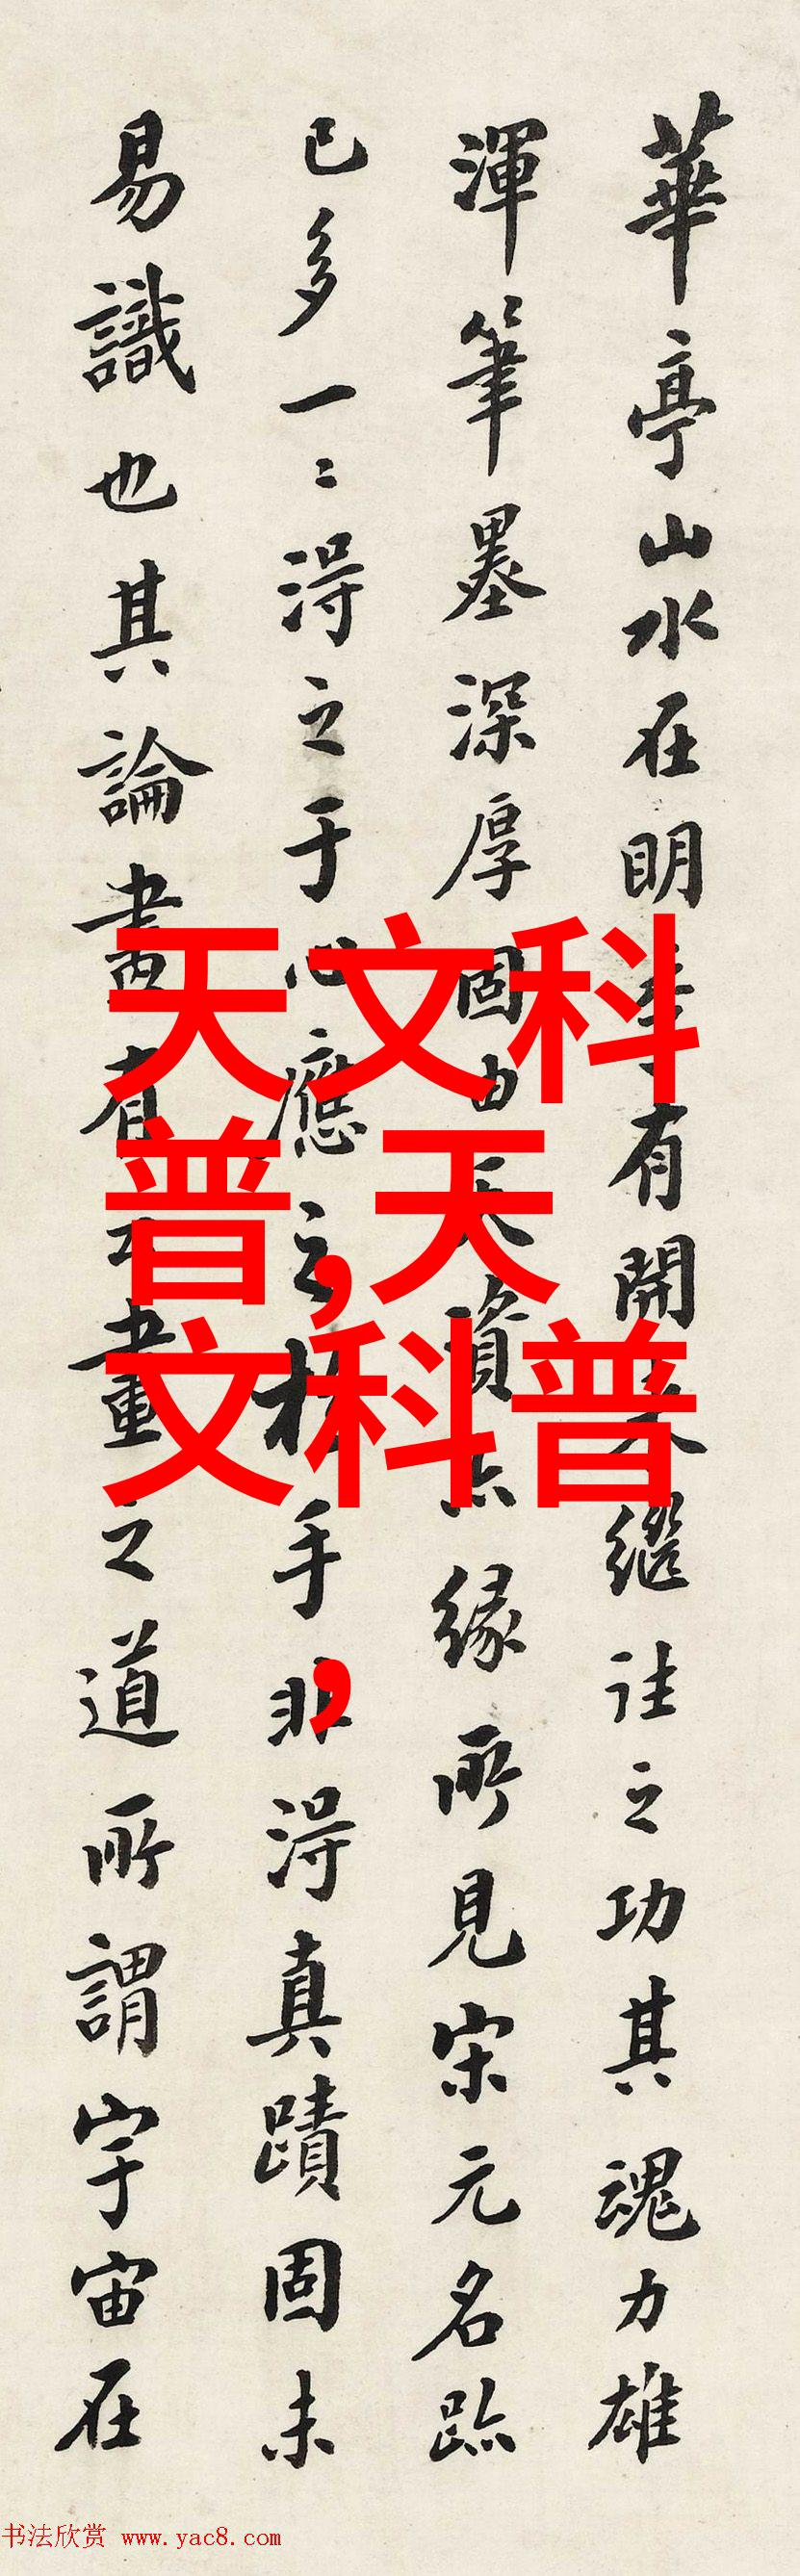 華亭山水在明季有開來繼往之功其魂力雄
渾筆墨深厚固由天資亦緣所見宋元名跡
已多一〻得之于心應之於手非得真蹟固未
易識也其論畫有畫之道所謂宇宙在
天文科
普,天
文科普
,
书法欣赏 www.yac8.com